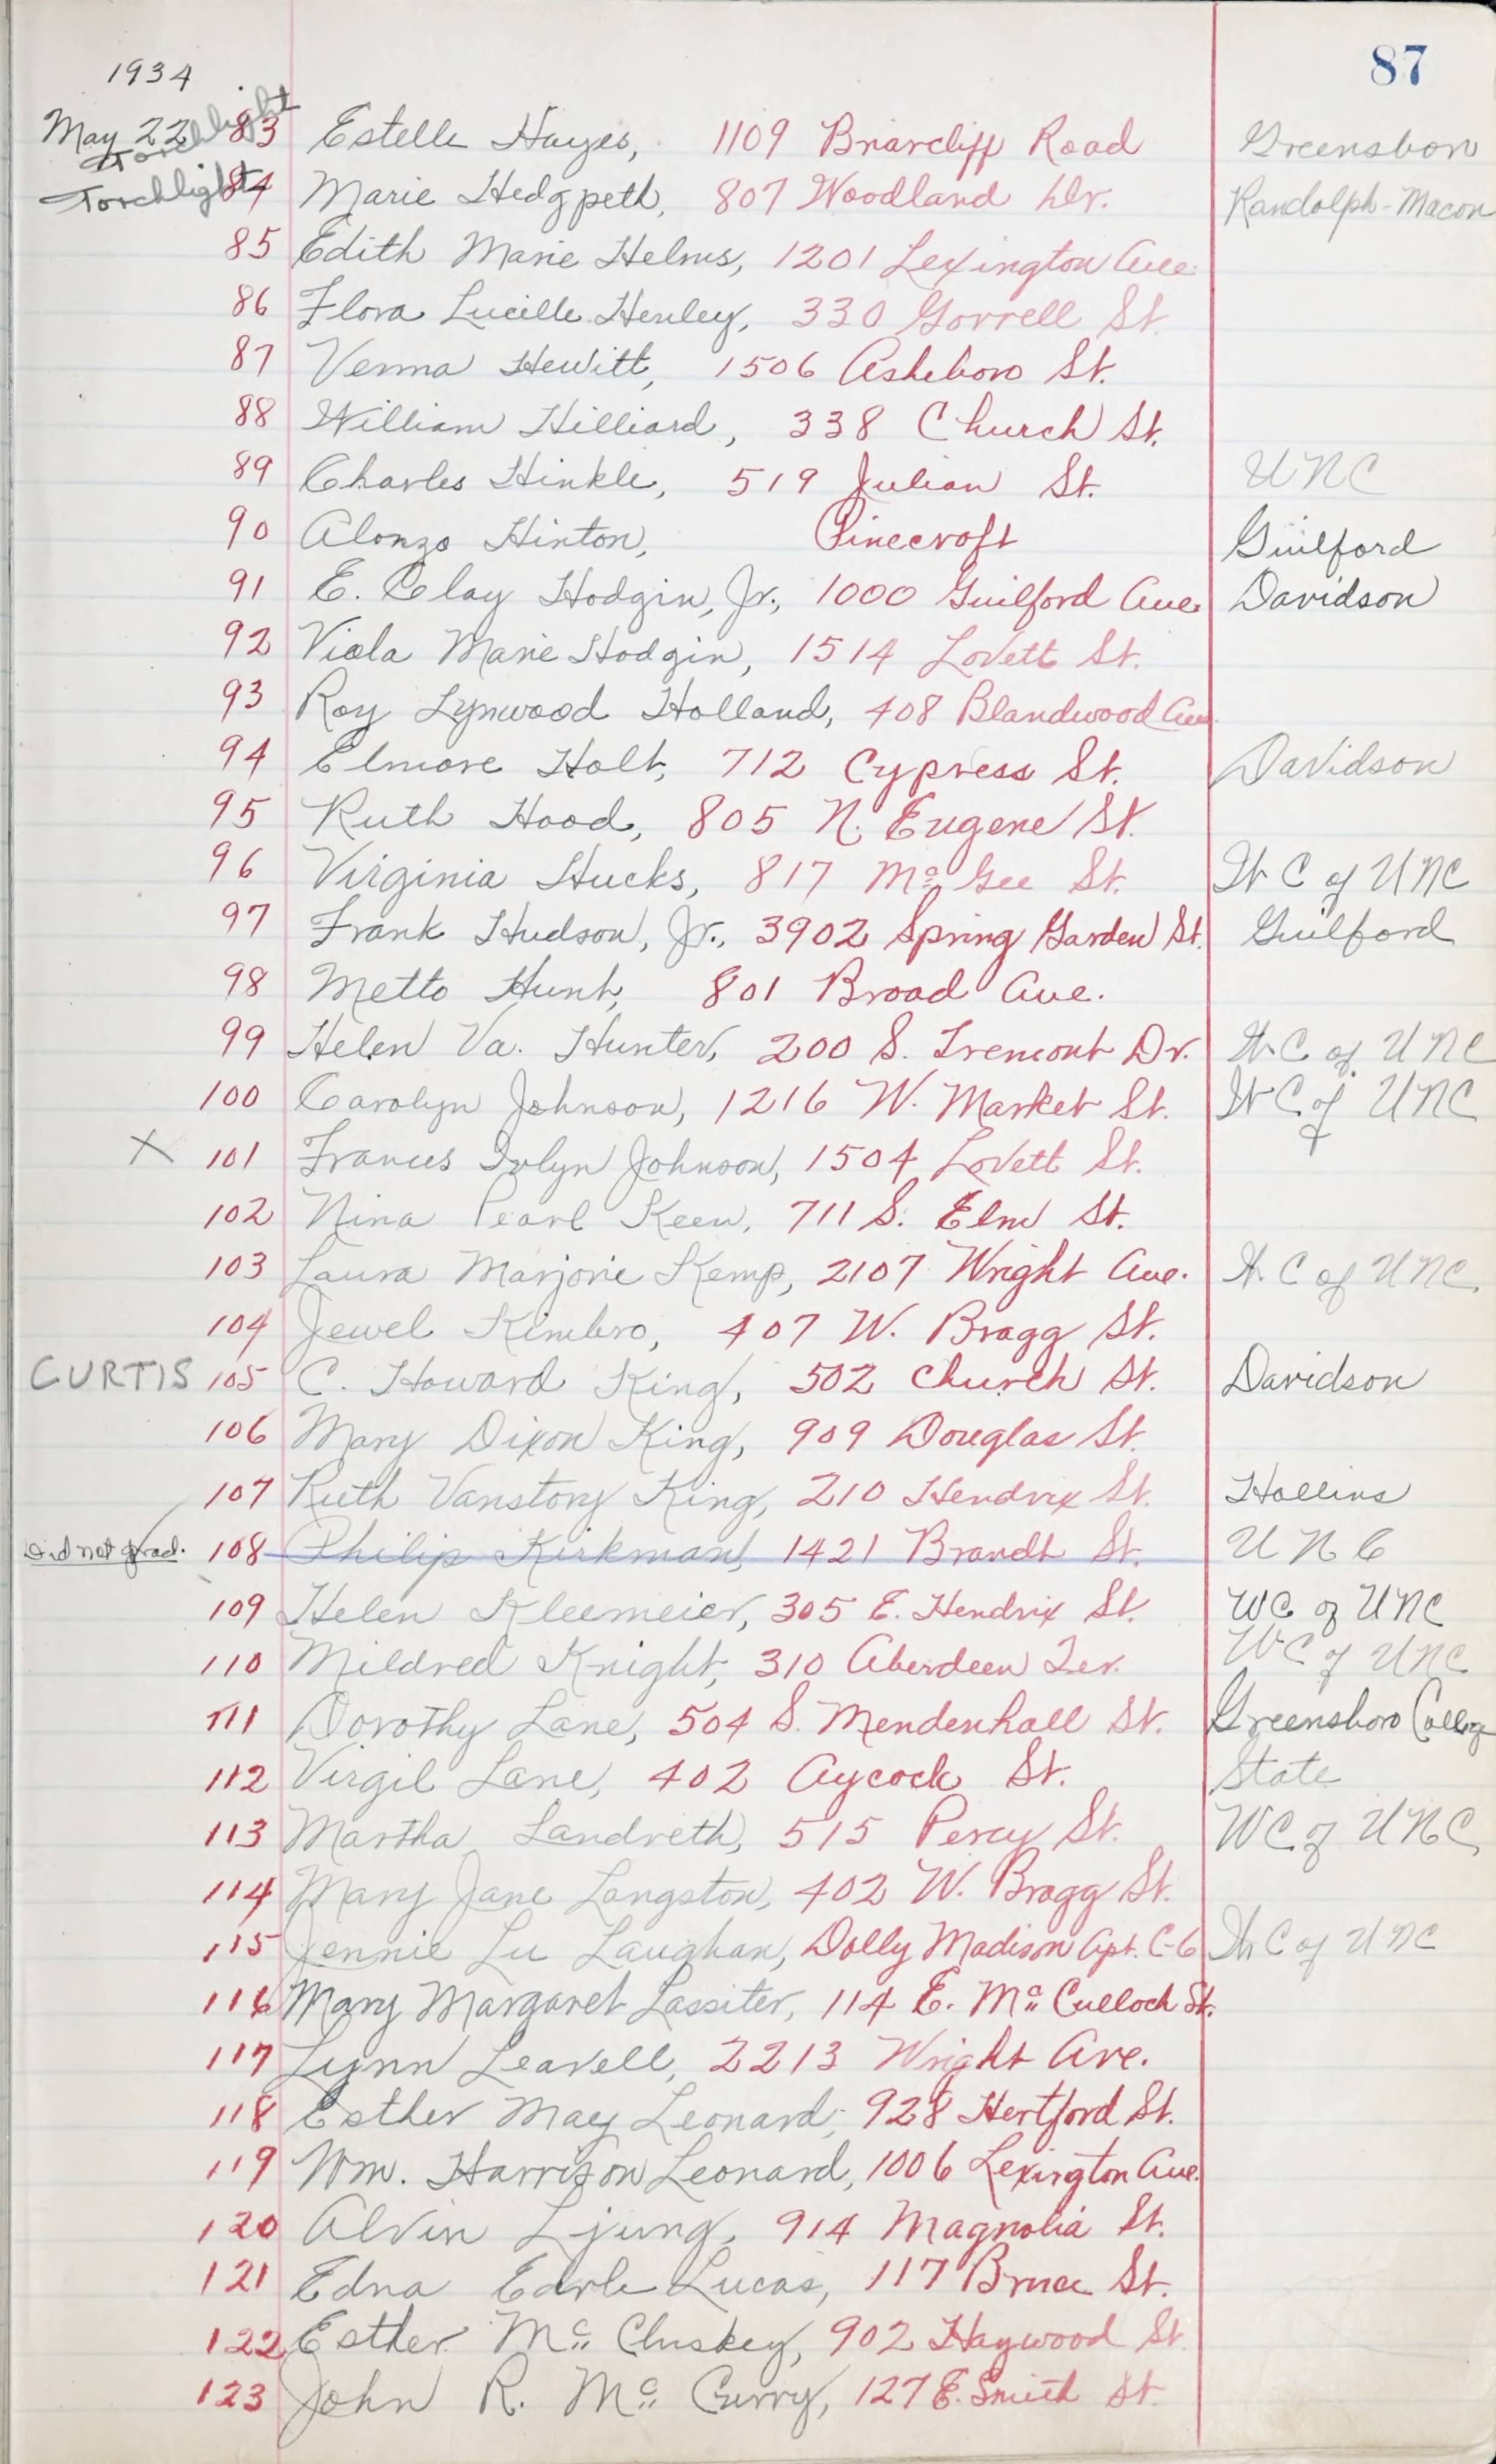 87
1934
May 22 Torchlight 83 Estelle Hayes, 1109 Briarcliff Road Greensboro
Torchlight 84 Marie Hedgpeth, 807 Woodland Dr. Randolph-Macon
85 Edith Marie Helms, 1201 Lexington Ave.
86 Flora Lucille Henley, 330 Gorrell St.
87 Verma Hewitt, 1506 Asheboro St.
88 William Hilliard, 338 Church St.
89 Charles Hinkle, 519 Julian St. UNC
90 Alonzo Hinton, Pinecroft Guilford
91 E. Clay Hodgin, Jr., 1000 Guilford Ave. Davidson
92 Viola Marie Hodgin, 1514 Lovett St.
93 Roy Lynwood Holland, 408 Blandwood Ave.
94 Elmore Holt, 712 Cypress St. Davidson
95 Ruth Hood, 805 N. Eugene St.
96 Virginia Hucks, 817 McGee St. W C of UNC
97 Frank Hudson, Jr., 3902 Spring Garden St. Guilford
98 Metto Hunt, 801 Broad Ave.
99 Helen Va. Hunter, 200 S. Tremont Dr. W C of UNC
100 Carolyn Johnson, 1216 W. Market St. W C of UNC
X 101 Frances Ivlyn Johnson, 1504 Lovett St.
102 Nina Pearl Keen, 711 S. Elm St.
103 Laura Marjorie Kemp, 2107 Wright Ave. W C of UNC
104 Jewel Kimbro, 407 W. Bragg St.
CURTIS 105 C. Howard King, 502 Church St. Davidson
106 Mary Dixon King, 909 Douglas St.
107 Ruth Vanstory King, 210 Hendrix St. Hollins
Did not grad. 108 Philip Kirkman, 1421 Brandt St. UNC
109 Helen Kleemeier, 305 E. Hendrix St. WC of UNC
110 Mildred Knight, 310 Aberdeen Ter. WC of UNC
111 Dorothy Lane, 504 S. Mendenhall St. Greensboro College
112 Virgil Lane, 402 Aycock St. State
113 Martha Landreth, 515 Percy St. WC of UNC
114 Mary Jane Langston, 402 W. Bragg St.
115 Jennie Lu Laughan, Dolly Madison Apt. C-6 W C of UNC
116 Mary Margaret Lassiter, 114 E. McCulloch St.
117 Lynn Leavell, 2213 Wright Ave.
118 Esther May Leonard, 928 Hertford St.
119 Wm. Harrison Leonard, 1006 Lexington Ave.
120 Alvin Ljung, 914 Magnolia St.
121 Edna Earle Lucas, 117 Bruce St.
122 Esther McCluskey, 902 Haywood St.
123 John R. McCurry, 127 E. Smith St.